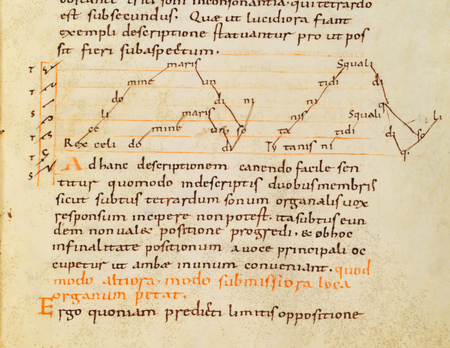 est subsecundus. Quę ut lucidiora fiant
exempli descriptione statuantur pro ut pos
sit fieri subaspectum.
maris Squali
mine un tidi
do di ni ni di li
ce maris so ta Squali
Rex celi do mine un so Ty tanis ni tidi di q.
Ad hanc descriptionem canendo facile sen
titur quomodo indescriptis duobus membris
sicut subtus tetrardum sonum organalis uox
responsum incipere non potest. ita subtus eun
dem non ualeat positione progredi. & obhoc
infinalitate positionum a uoce principali oc
cupetur ut ambæ inunum conueniant. quod
modo altiora. modo submissiora loca
organum petat.
Ergo quoniam predicti limitis oppositione